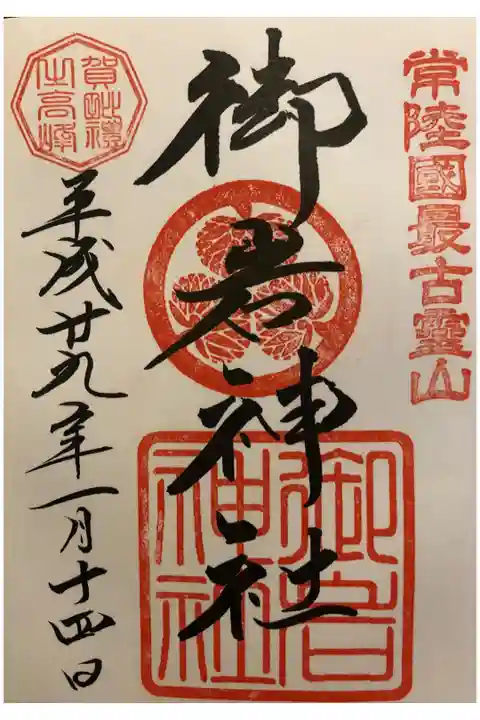 常陸國最古靈山
御岩神社
御岩
神社
賀毗禮
之高峰
平成廿九年一月十四日